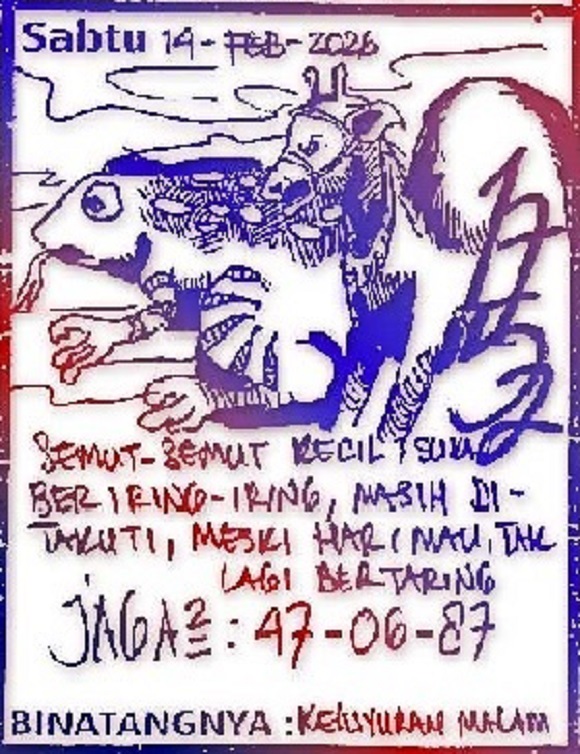 Sabtu 14-FEB-2026
SEMUT-SEMUT KECIL SUKA
BERIRING-IRING, MASIH DI-
TAKUTI, MESKI HARIMAU, TAK
LAGI BERTARING
JAGA2 : 47-06-87
BINATANGNYA : KELUYURAN MALAM